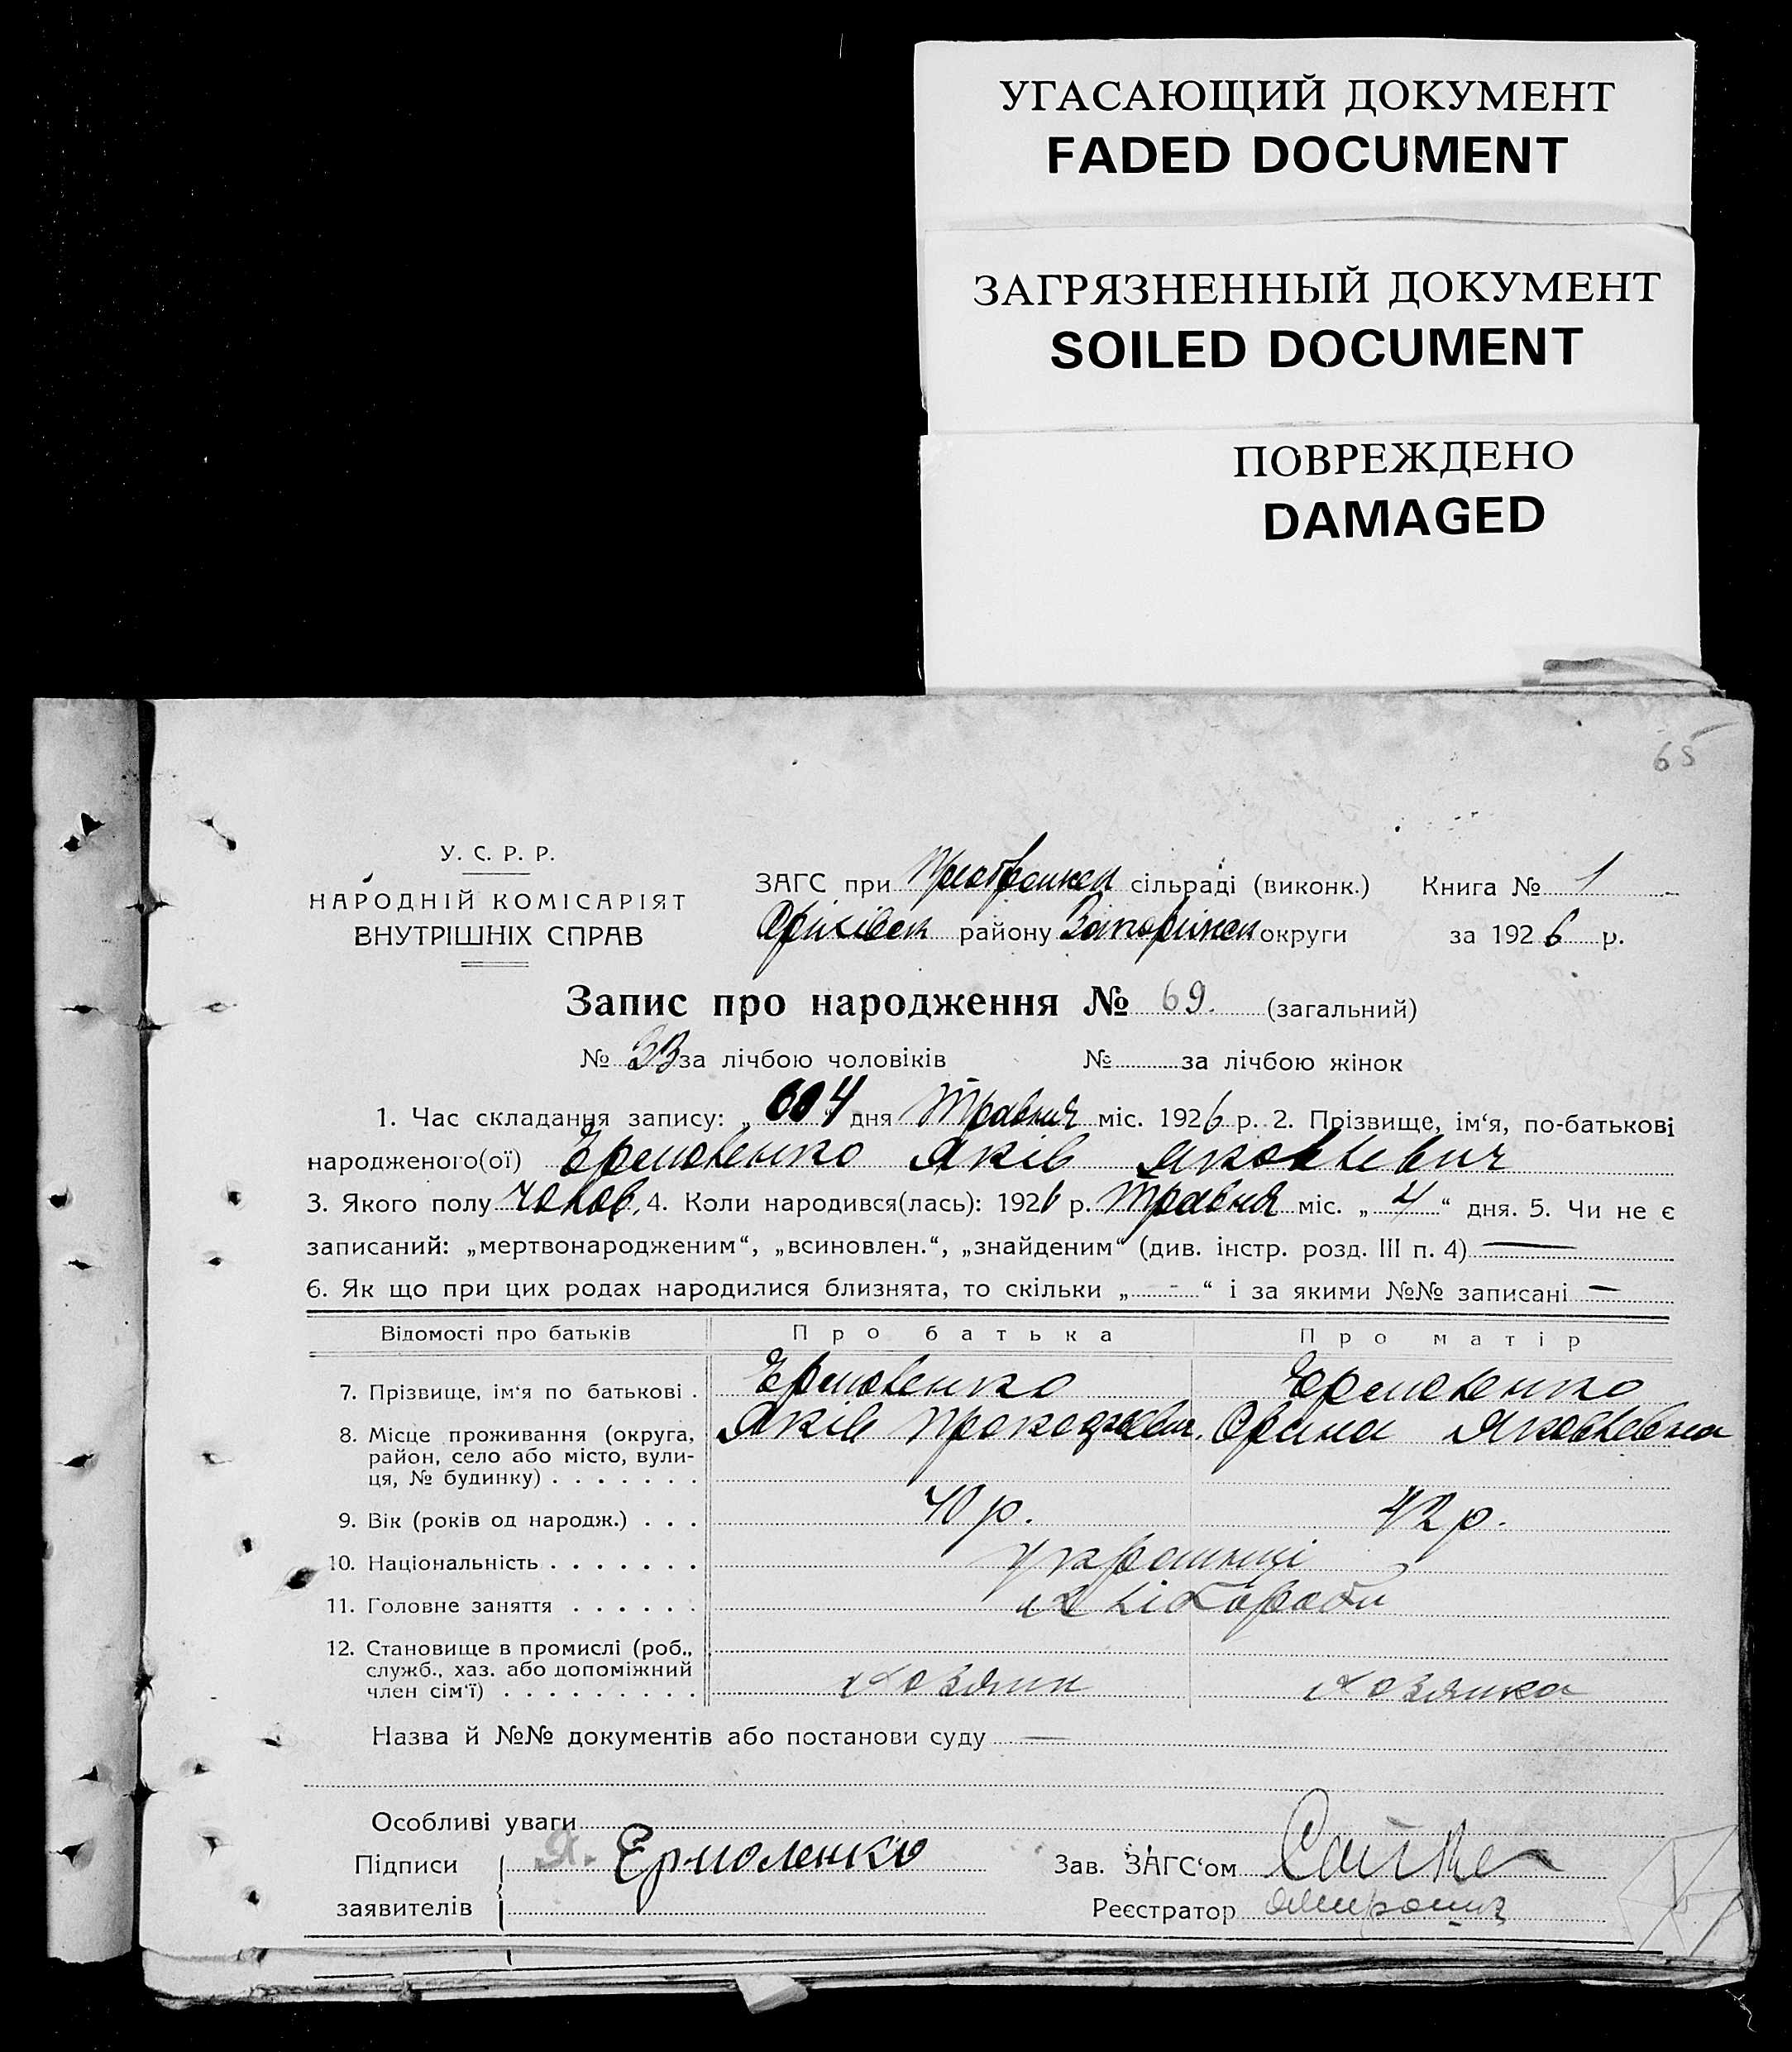 УГАСАЮЩИЙ ДОКУМЕНТ
FADED DOCUMENT
ЗАГРЯЗНЕННЫЙ ДОКУМЕНТ
SOILED DOCUMENT
ПОВРЕЖДЕНО
DAMAGED
65
У. С. Р. Р.
НАРОДНІЙ КОМІСАРІЯТ
ВНУТРІШНІХ СПРАВ
ЗАГС при сільраді (виконк.) Книга № 1
Оріхівськ району Запоріжськ округи за 1926 р.
Запис про народження № 69. (загальний)
№ 33 за лічбою чоловіків № за лічбою жінок
1. Час складання запису: „ 4 дня Травня міс. 1926 р. 2. Прізвище, ім‘я, по-батькові
народженого(ої) Ермоленко Яків Яковлевич
3. Якого полу чолов, 4. Коли народився(лась): 1926 р. Травня міс. „ 4 “ дня. 5. Чи не є
записаний: „мертвонародженим“, „всиновлен.“, „знайденим“ (див. інстр. розд. III п. 4) —
6. Як що при цих родах народилися близнята, то скільки „ - “ і за якими №№ записані —
Відомості про батьків Про батька Про матір
7. Прізвище, ім‘я по батькові . Ермоленко Ермоленко
8. Місце проживання (округа, Яків Орина Яковлевна
район, село або місто, вули-
ця, № будинку) . . . . . . .
9. Вік (років од народж.) . . . 40 р. 42 р.
10. Національність . . . . . . . українці
11. Головне заняття . . . . . . хлібороби
12. Становище в промислі (роб.,
служб., хаз. або допоміжний
член сім‘ї) . . . . . . . . . Хозяин Хозяйка
Назва й №№ документів або постанови суду —
Особливі уваги
Підписи Я. Ермоленко Зав. ЗАГС‘ом
заявителів Реєстратор